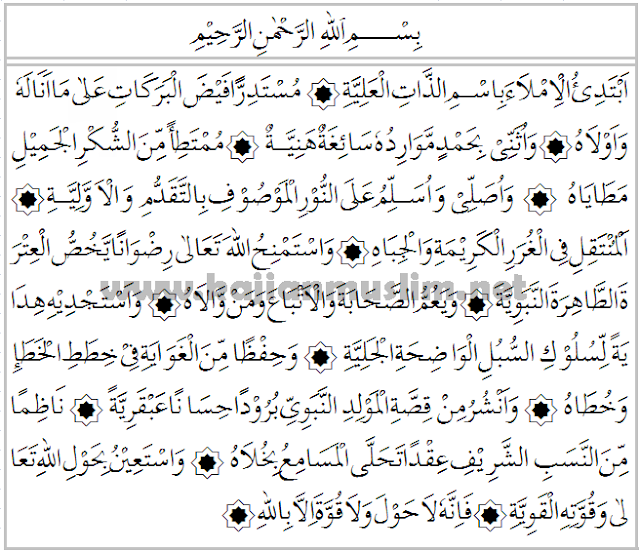 بِسْـــمِ اللهِ الرَّحْمٰنِ الرَّحِيْمِ
اَبْتَدِئُ الْاِمْلَاءَ بِاسْمِ الذَّاتِ الْعَلِيَّةِ ۞ مُسْتَدِرًّا فَيْضَ الْبَرَكَاتِ عَلٰى مَا اَنَالَهُ
وَاَوْلَاهُ ۞ وَاُثَنِّىْ بِحَمْدٍ مَّوَارِدُهُ سَائِغَةٌ هَنِيَّةٌ ۞ مُمْتَطِأً مِّنَ الشُّكْرِ الْجَمِيْلِ
مَطَايَاهُ ۞ وَاُصَلِّىْ وَاُسَلِّمُ عَلَى النُّوْرِ الْمَوْصُوْفِ بِالتَّقَدُّمِ وَالْاَوَّلِيَّةِ ۞
اَلْمُنْتَقِلِ فِى الْغُرَرِ الْكَرِيْمَةِ وَالْجِبَاهِ ۞ وَاسْتَمْنِحُ اللهَ تَعَالٰى رِضْوَانًا يَّخُصُّ الْعِتْرَ
ةَ الطَّاهِرَةَ النَّبَوِيَّةَ ۞ وَيَعُمُّ الصَّحَابَةَ وَالْاَتْبَاعَ وَمَنْ وَّالَاهُ ۞ وَاسْتَجْدِيْهِ هِدَا
يَةً لِّسُلُوْكِ السُّبُلِ الْوَاضِحَةِ الْجَلِيَّةِ ۞ وَحِفْظًا مِّنَ الْغَوَايَةِ فِيْ خِطَطِ الْخَطَاِ
وَخُطَاهُ ۞ وَاَنْشُرُ مِنْ قِصَّةِ الْمَوْلِدِ النَّبَوِيِّ بُرُوْدًا حِسَانًا عَبْقَرِيَّةً ۞ نَاظِمًا
مِّنَ النَّسَبِ الشَّرِيْفِ عِقْدًا تَحَلَّى الْمَسَامِعُ بِحُلَاهُ ۞ وَاسْتَعِيْنُ بِحَوْلِ اللهِ تَعَا
لٰى وَقُوَّتِهِ الْقَوِيَّةِ ۞ فَاِنَّهُ لَا حَوْلَ وَلَا قُوَّةَ اِلَّا بِاللهِ ۞
www.kajianmuslim.net